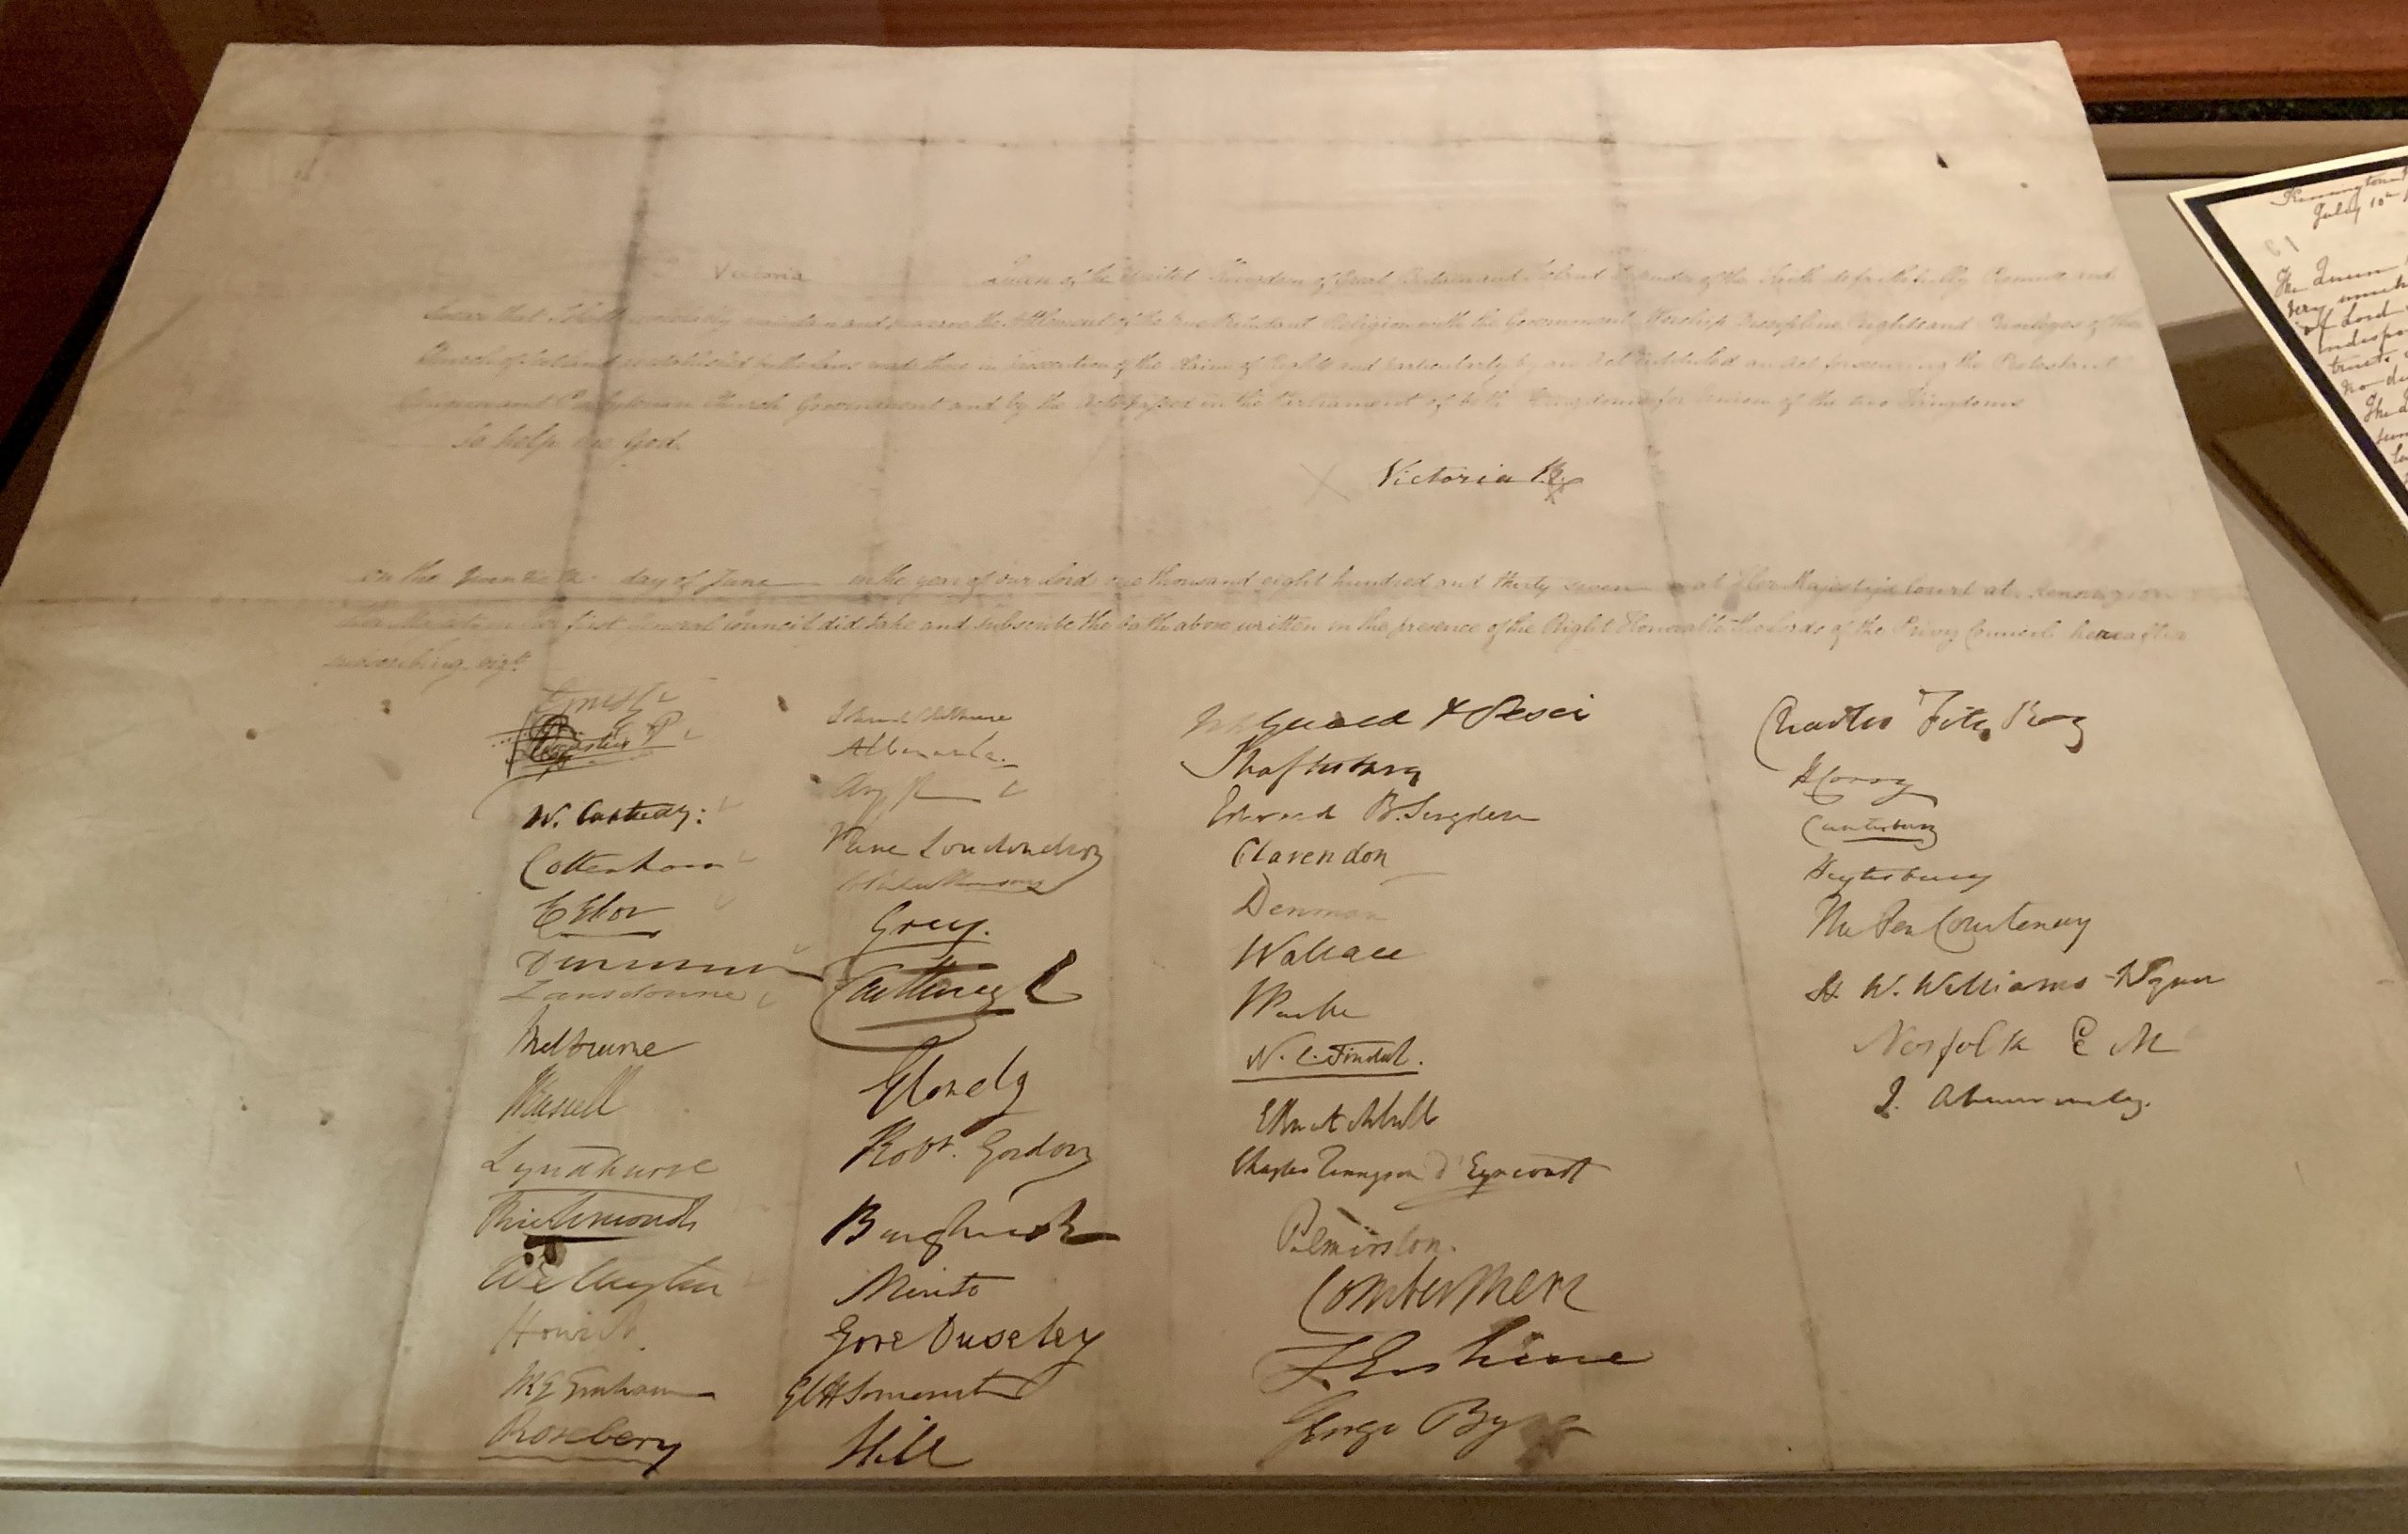 Victoria Queen of the United Kingdom of Great Britain and Ireland Defender of the Faith do faithfully Promise and
Swear that I shall inviolably maintain and preserve the Settlement of the true Protestant Religion with the Government Worship Discipline Rights and Privileges of the
Church of Scotland as established by the Laws made there in prosecution of the Claim of Right and particularly by an Act intituled an Act for securing the Protestant
Religion and Presbyterian Church Government and by the Acts passed in the Parliament of both Kingdoms for Union of the two Kingdoms
So help me God.
Victoria R
on the Twentieth day of June in the year of our Lord one thousand eight hundred and thirty seven at Her Majesty's Court at Kensington
Her Majesty in Her first General Council did take and subscribe the Oath above written in the presence of the Right Honorable the Lords of the Privy Council hereafter
subscribing vizt.
Ernest
Augustus F
W. Cantuar:
Cottenham
E Ebor
Lansdowne
Melbourne
JRussell
Lyndhurst
Richmond
Wellington
Howick
JRG Graham
Rosebery
Albemarle
Vane Londonderry
Grey.
Glenelg
Robt. Gordon
Burghersh
Minto
Gore Ouseley
GCH Somerset
Hill
Shaftesbury
Edward B. Sugden
Clarendon
Denman
Wallace
JParke
N. C. Tindal.
E Knatchbull
Charles Tennyson D'Eyncourt
Palmerston.
Combermere
T. Erskine
George Byng
Charles Fitz Roy
H Corry
Canterbury
Heytesbury
Tho Per Courtenay
H. W. Williams-Wynn
Norfolk E M
J. Abercromby.
Kensington
July 10th
The Queen
very much
of Lord
indispo
trusts
no de
The